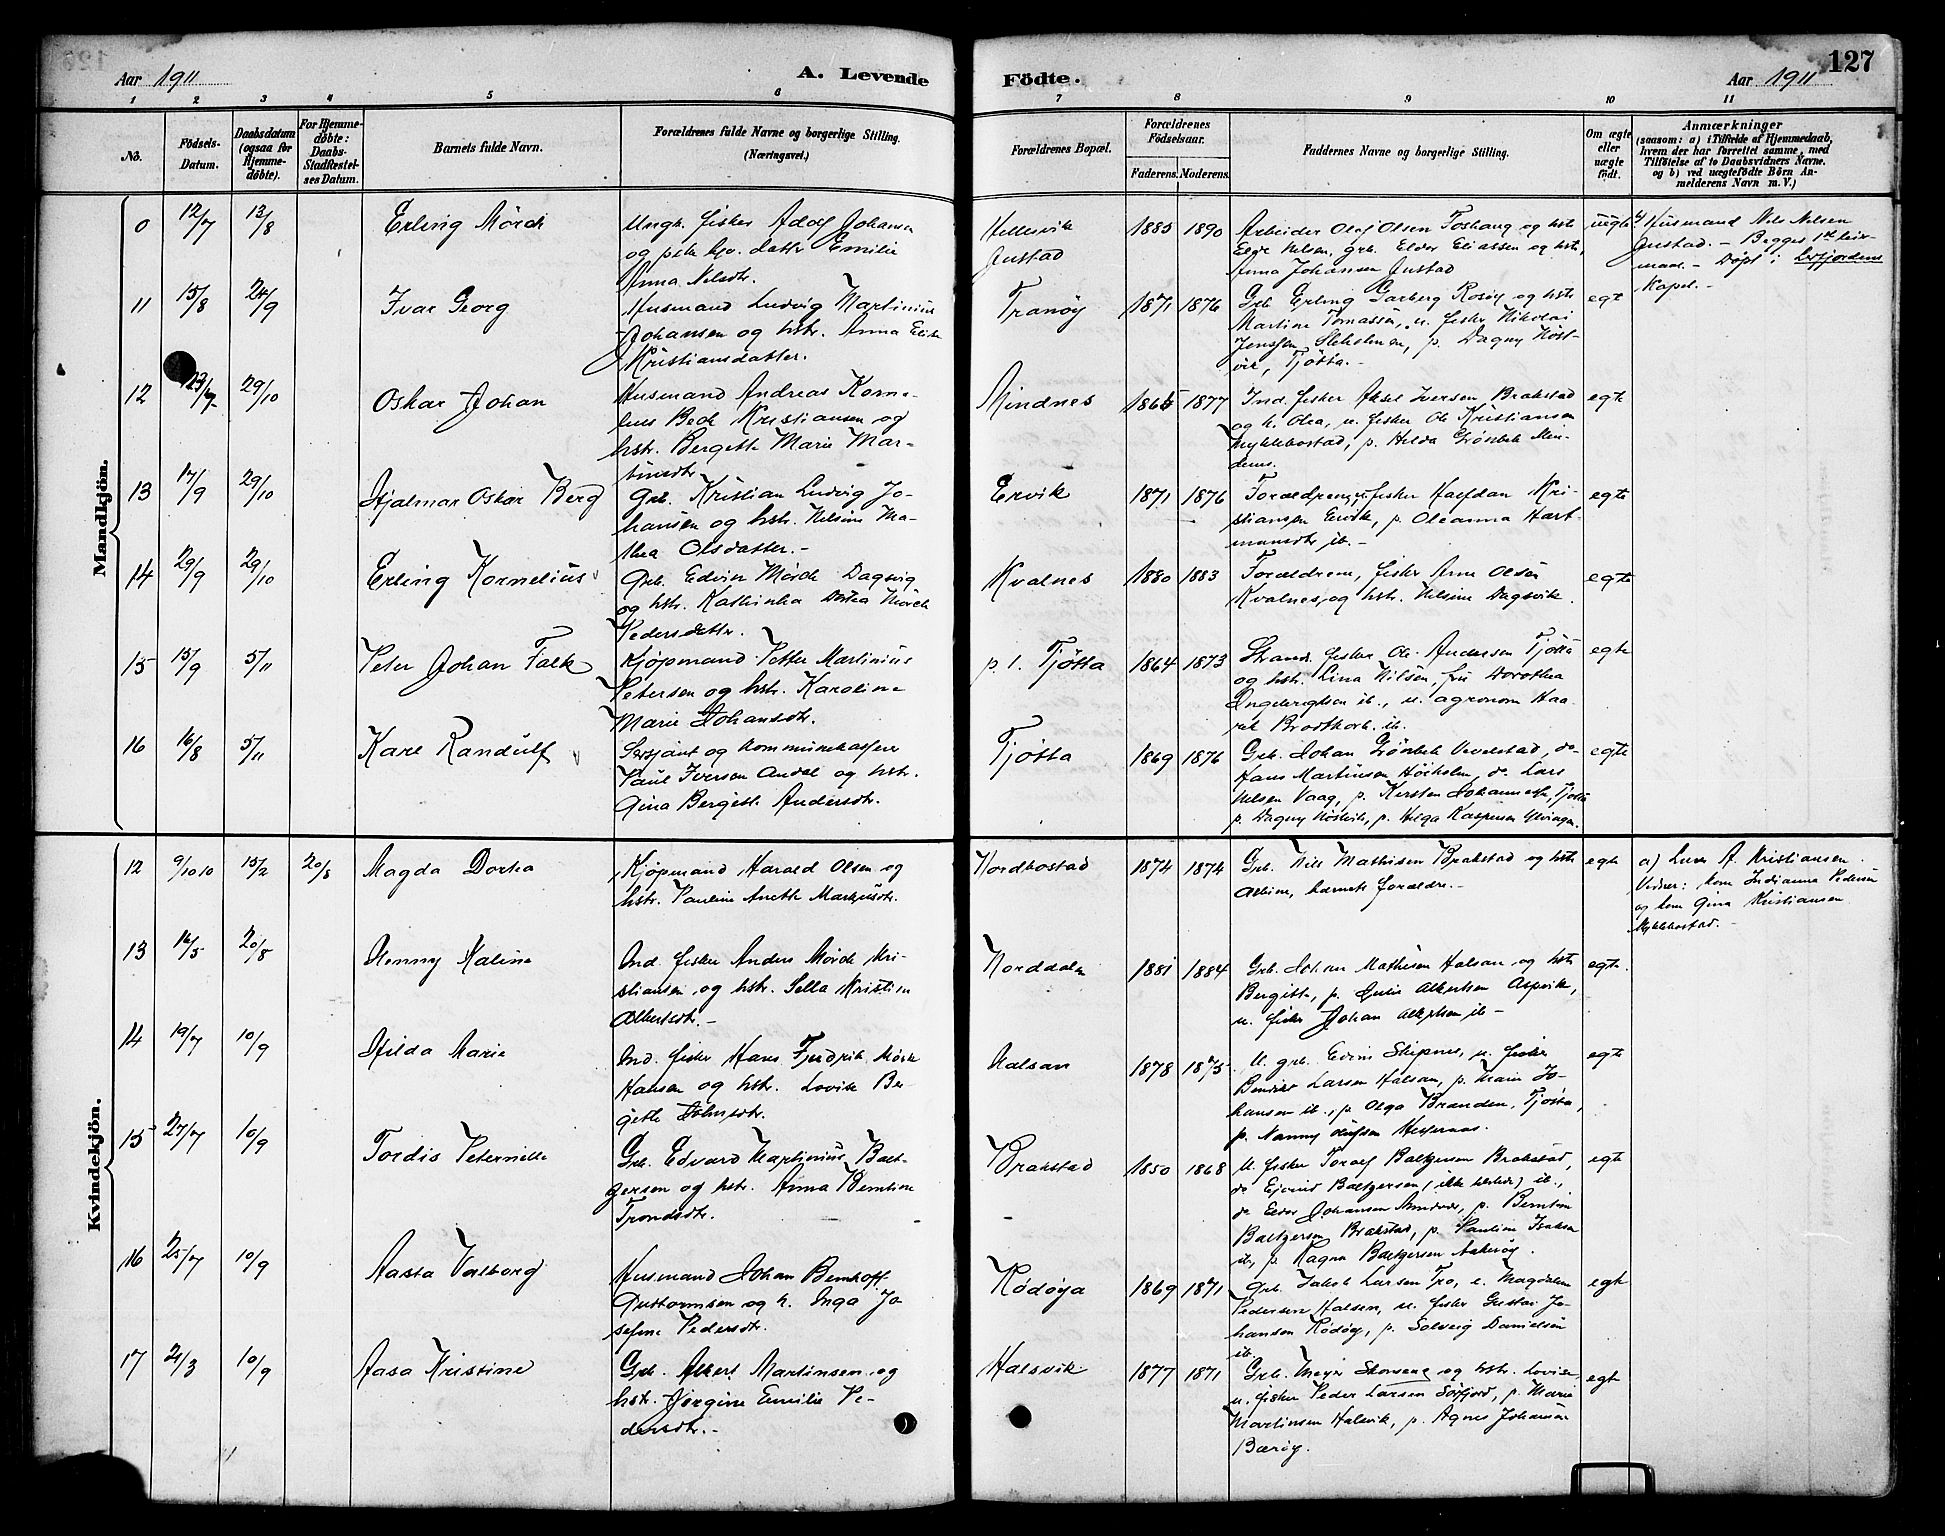 127
Aar 1911
A. Levende
Födte.
Aar 1911
1 2 3 4 5 6 7 8 9 10 11
No.
Födsels-
Datum.
Daabsdatum
(ogsaa for
Hjemme-
döbte).
For Hjemme-
döbte:
Daabs-
Stadfæstel-
ses Datum.
Barnets fulde Navn.
Forældrenes fulde Navne og borgerlige Stilling.
(Næringsvei.)
Forældrenes Bopæl.
Forældrenes
Födselsaar.
Faderens. Moderens.
Faddernes Navne og borgerlige Stilling.
Om ægte
eller
uægte
födt.
Anmærkninger
(saasom: a) i Tilfælde af Hjemmedaab,
hvem der har forrettet samme, med
Tilföielse af to Daabsvidners Navne.
og b) ved uægtefödte Börn An-
melderens Navn m. V.)
Mandkjön.
0 12/7 13/8 Erling Mörch
Ungk. fisker Adolf Johansen
og pike gjo. datter Emilie
Anna Nilsdtr.
Hellesvik
Justad
1885 1890
Arbeider Olaf Olsen Toshaug og hstr
Nilsen, grb. Elder Eliassen og hstr,
Anna Johansen Justad
uegte
Husmand Nils Nilsen
Justad. - Begges 1ste leier-
maal. - Döpt i
Kapel. -
11 15/8 24/9 Ivar Georg
Husmand Ludvig Martinius
Johansen og hstr. Anna Elise
Kristiansdatter.
Tranöy
1871 1876
Grb. Erling Garberg Rosöy og hstr
Martine Tomassen, u. fisker Nikolai
Jenssen Slekolmen, p. Dagny Höst-
vik, Tjötta. -
egte
12 29/10 Oskar Johan
Husmand Andreas Korne-
lius Bech Kristiansen og
hstr. Bergitte Marie Mar-
tinsdtr.
Mindnes
1865 1877
Ind. fisker Aksel Iversen Brakstad
og h. Olea, u. fisker Ole Kristiansen
Myklebostad, p. Hilda Grönbek Min-
denes.
egte
13 17/9 29/10 Hjalmar Oskar Berg
Grb. Kristian Ludvig Jo-
hansen og hstr. Nilsine Ma-
thea Olsdatter. -
Ervik
1871 1876
Forældrene, fisker Halfdan Kri-
stiansen Ervik, p. Oleanna Hart-
mansdtr ib. -
egte
14 29/9 29/10 Erling Kornelius
Grb. Edvin Mörch Dagsvig
og hstr. Kathinka Dortea Mörch
Pedersdatter.
Kvalnes
1880 1883
Forældrene, fisker Arne Olsen
Kvalnes, og hstr. Nilsine Dagsvik.
egte
15 15/9 5/11 Peter Johan Falk
Kjöpmand Petter Martinius
Petersen og hstr. Karoline
Marie Johansdtr.
p.t. Tjötta
1864 1873
Strands. fisker Ole Andersen Tjötta
og hstr. Lina Nilsen, fru Dorothea
Ingebrigtsen ib., u. agronom Haa-
Brodtkorb ib.
egte
16 16/8 5/11 Kare Randulf
Sersjant og kommunekasserer
Paul Iversen Andal og hstr.
Gina Bergitte Andersdtr.
Tjötta
1869 1876
Grb. Johan Grönbek Vevelstad, do
Hans Martinsen Höiholm, do Lars
Nilsen Vaag, p. Kirsten Johannesen, Tjötta
p. Dagny Höstvik, p. Helga Kaspersen
egte
Kvindekjön.
12 9/10 10 15/2 20/8 Magda Dortea
Kjöpmand Harald Olsen og
hstr. Pauline Anette Markusdtr.
Nordbostad
1874 1874
Grb. Nils Mathisen Brakstad og hstr
Albine, barnets forældre. -
egte
a) Lærer A. Kristiansen.
Vidner: kone Indianna Pedersen
og kone Gina Kristiansen
Myklebostad. -
13 16/5 20/8 Henny Kaline
Ind. fisker Anders Mörch Kri-
stiansen og hstr. Sella Kristine
Albertsdtr. -
Norddalen
1881 1884
Grb. Johan Mathisen Halsan og hstr
Bergitte, p. Albertsen Aspvik,
u. fisker Johan Albertsen ib -
egte.
14 19/7 10/9 Hilda Marie
Ind. fisker Hans Fredrik Mörch
Hansen og hstr. Lovise Ber-
gitte Johnsdtr.
Halsan
1878 1875
U. grb. Edvin Skipnes, u. fisker
Larsen Halsan, p. Marie Jo-
hansen ib., p. Olga Branden, Tjötta,
p. Nanny Olufsen
egte
15 27/7 10/9 Tordis Peternille
Grb. Edvard Martinius Balt-
gersen og hstr. Anna Berntine
Trondsdtr.
Brakstad
1850 1868
U. fisker Toralf Baltzersen Brakstad,
do Eivind Baltzersen, (ikke tilstede) ib.,
do Elder Johansen p. Berntine
Baltzersen Brakstad, p. Pauline Isaksen
ib, p. Ragna Baltzersen Aakvög.
egte
16 25/7 10/9 Aasta Valborg
Husmand Johan Bernhoff
Guttormsen og h. Inga Jo-
sefine Pedersdtr.
Rödöya
1869 1871
Grb. Jakob Larsen Tro, e. Magdalene
Pedersen Halsen, u. fisker Gustav Jo-
hansen Rödöy, p. Solveig Danielsen
ib.
egte
17 21/3 10/9 Aasa Kristine
Grb. Albert Martinsen og
hstr. Jörgine Emilie Pe-
dersdtr. -
Halsvik
1877 1871
Grb. Meyer og hstr. Lovise,
u. fisker Peder Larsen Sörfjord, p. Marie
Martinsen Halsvik, p. Agnes Johansen
Bæröy.
egte